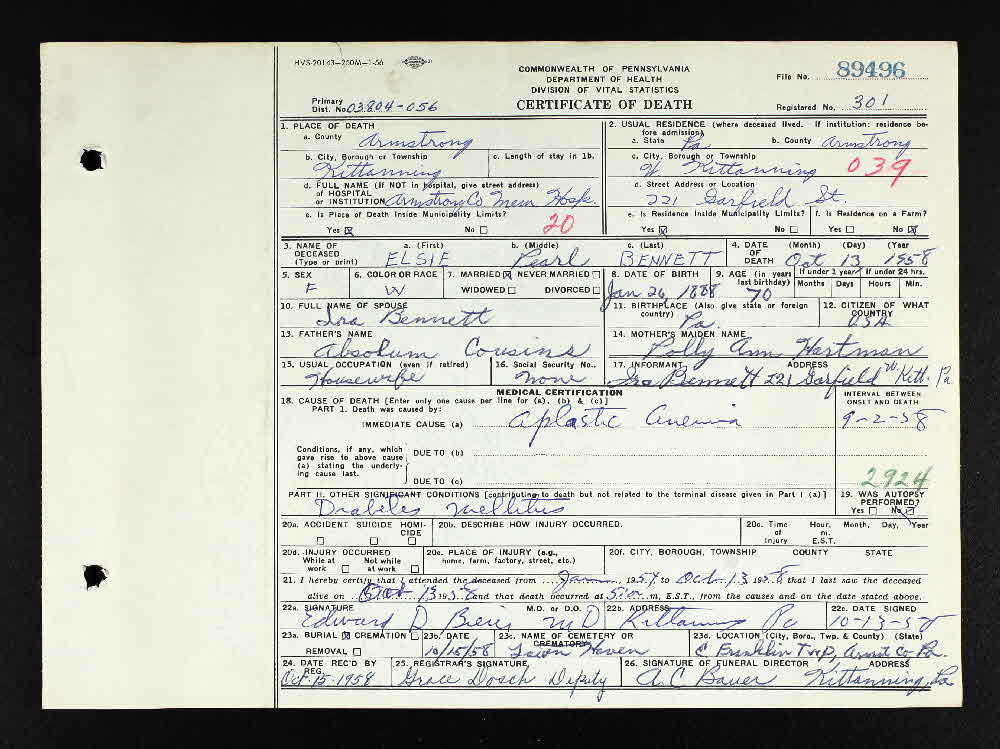 HVS-20143-250M-1-56
COMMONWEALTH OF PENNSYLVANIA
DEPARTMENT OF HEALTH
DIVISION OF VITAL STATISTICS
CERTIFICATE OF DEATH
File No. 89496
Primary
Dist. No. 03804-056
Registered No. 301
1. PLACE OF DEATH
a. County Armstrong
b. City, Borough or Township
Kittanning
c. Length of stay in 1b.
d. FULL NAME (If NOT in hospital, give street address)
of HOSPITAL
or INSTITUTION Armstrong Co Mem Hosp.
e. Is Place of Death Inside Municipality Limits? 20
Yes ☒ No ☐
2. USUAL RESIDENCE (where deceased lived. If institution: residence be-
fore admission)
a. State Pa b. County Armstrong
c. City, Borough or Township
W. Kittanning 039
d. Street Address or Location
221 Garfield St.
e. Is Residence Inside Municipality Limits? f. Is Residence on a Farm?
Yes ☒ No ☐ Yes ☐ No ☒
3. NAME OF
DECEASED
(Type or print)
a. (First) b. (Middle) c. (Last)
ELSIE Pearl BENNETT
4. DATE
OF
DEATH
(Month) (Day) (Year
Oct 13 1958
5. SEX
F
6. COLOR OR RACE
W
7. MARRIED ☒ NEVER MARRIED ☐
WIDOWED ☐ DIVORCED ☐
8. DATE OF BIRTH
Jan 26, 1888
9. AGE (in years
last birthday)
70
If under 1 year If under 24 hrs.
Months Days Hours Min.
10. FULL NAME OF SPOUSE
Ira Bennett
11. BIRTHPLACE (Also give state or foreign
country)
Pa.
12. CITIZEN OF WHAT
COUNTRY
USA
13. FATHER'S NAME
Absolum Cousins
14. MOTHER'S MAIDEN NAME
Polly Ann Hartman
15. USUAL OCCUPATION (even if retired)
Housewife
16. Social Security No..
None
17. INFORMANT ADDRESS
Ira Bennett 221 Garfield W. Kitt. Pa
MEDICAL CERTIFICATION
18. CAUSE OF DEATH [Enter only one cause per line for (a), (b) & (c)]
PART 1. Death was caused by:
INTERVAL BETWEEN
ONSET AND DEATH
IMMEDIATE CAUSE (a) Aplastic Anemia 9-2-58
Conditions, if any, which
gave rise to above cause
(a) stating the underly-
ing cause last.
DUE TO (b)
DUE TO (c)
2924
PART II. OTHER SIGNIFICANT CONDITIONS [contributing to death but not related to the terminal disease given in Part I (a)]
Diabetes mellitus
19. WAS AUTOPSY
PERFORMED?
Yes ☐ No ☒
20a. ACCIDENT SUICIDE HOMI-
CIDE
☐ ☐ ☐
20b. DESCRIBE HOW INJURY OCCURRED.
20c. Time Hour, Month, Day, Year
of m.
Injury E.S.T.
20d. INJURY OCCURRED
While at Not while
work ☐ at work ☐
20e. PLACE OF INJURY (e.g.,
home, farm, factory, street, etc.)
20f. CITY, BOROUGH, TOWNSHIP COUNTY STATE
21. I hereby certify that I attended the deceased from Jan 1957 to Oct. 13 1958 that I last saw the deceased
alive on Oct 13 1958 and that death occurred at m, E.S.T., from the causes and on the date stated above.
22a. SIGNATURE M.D. or D.O.
Edward D MD
22b. ADDRESS
Kittanning Pa
22c. DATE SIGNED
10-13-58
23a. BURIAL ☒ CREMATION ☐
REMOVAL ☐
23b. DATE
10/15/58
23c. NAME OF CEMETERY OR
CREMATORY
Haven
23d. LOCATION (City, Boro., Twp. & County) (State)
E Franklin Twp, Armst Co Pa.
24. DATE REC'D BY
REG.
Oct-15-1958
25. REGISTRAR'S SIGNATURE
Grace Dosch Deputy
26. SIGNATURE OF FUNERAL DIRECTOR ADDRESS
A.C Bauer Kittanning, Pa